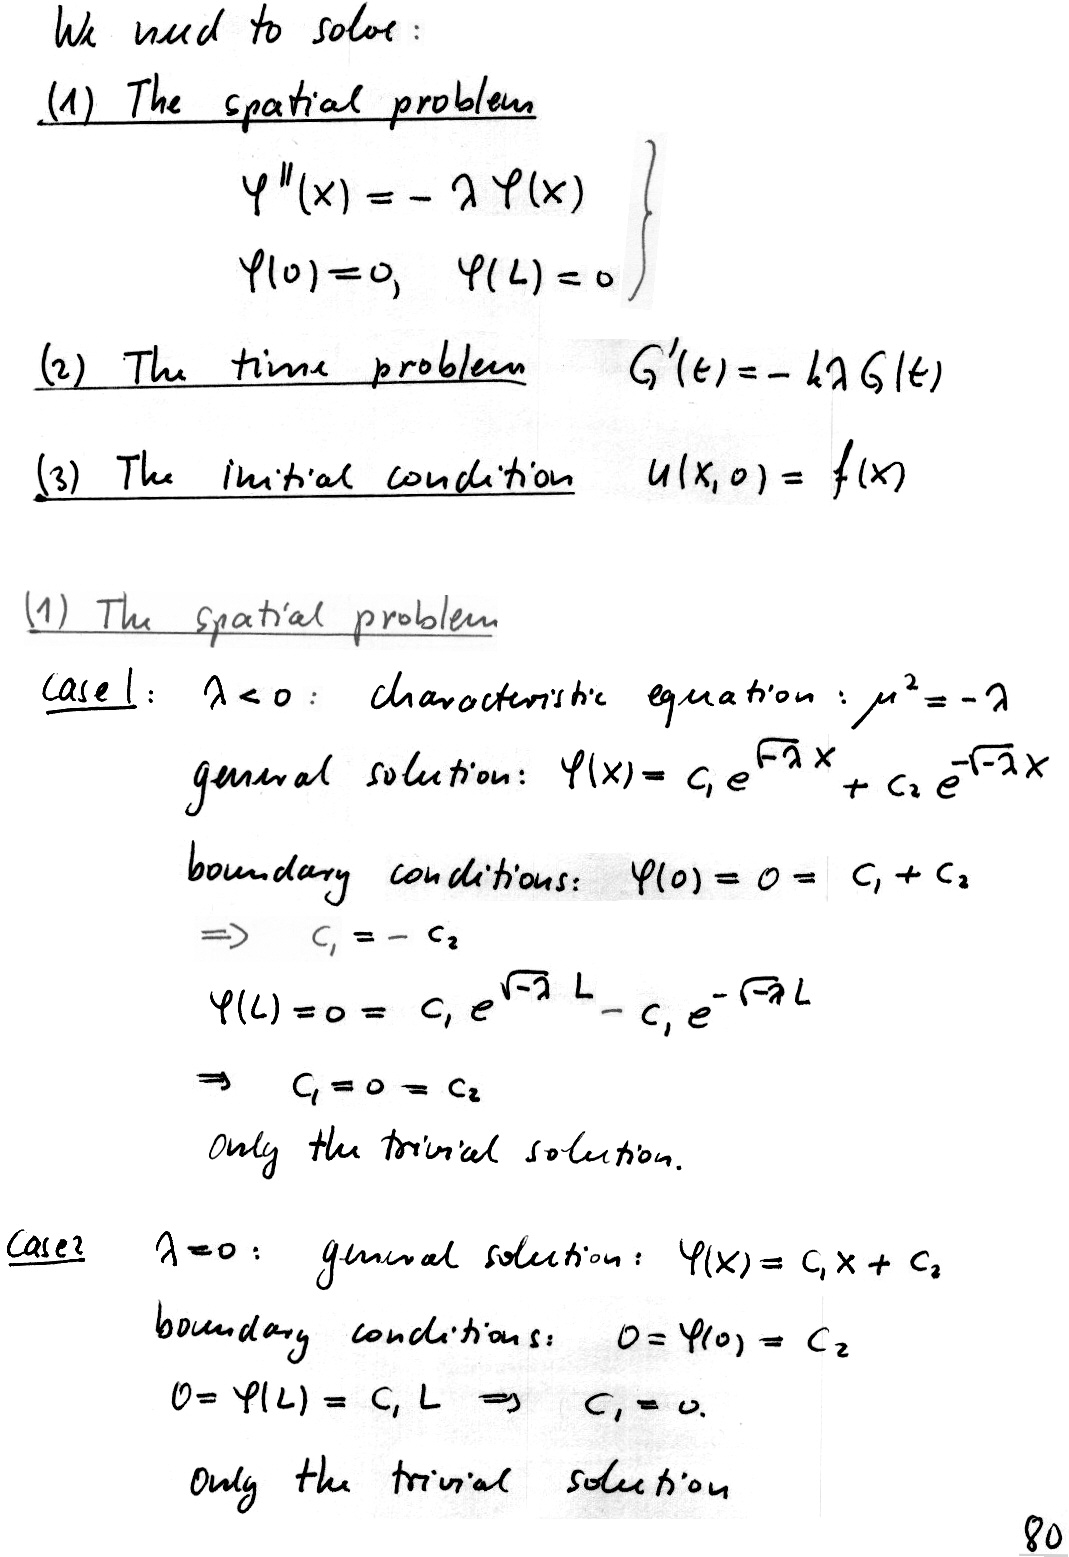 We need to solve:
(1) The spatial problem
φ''(x) = - λ φ(x)
φ(0) = 0, φ(L) = 0 }
(2) The time problem G'(t) = - kλ G(t)
(3) The initial condition u(x,0) = f(x)
(1) The spatial problem
Case 1: λ < 0: characteristic equation: μ² = -λ
general solution: φ(x) = c₁ e^{√-λ x} + c₂ e^{-√-λ x}
boundary conditions: φ(0) = 0 = c₁ + c₂
=> c₁ = - c₂
φ(L) = 0 = c₁ e^{√-λ L} - c₁ e^{-√-λ L}
=> c₁ = 0 = c₂
Only the trivial solution.
Case 2 λ = 0: general solution: φ(x) = c₁ x + c₂
boundary conditions: 0 = φ(0) = c₂
0 = φ(L) = c₁ L => c₁ = 0.
Only the trivial solution
80